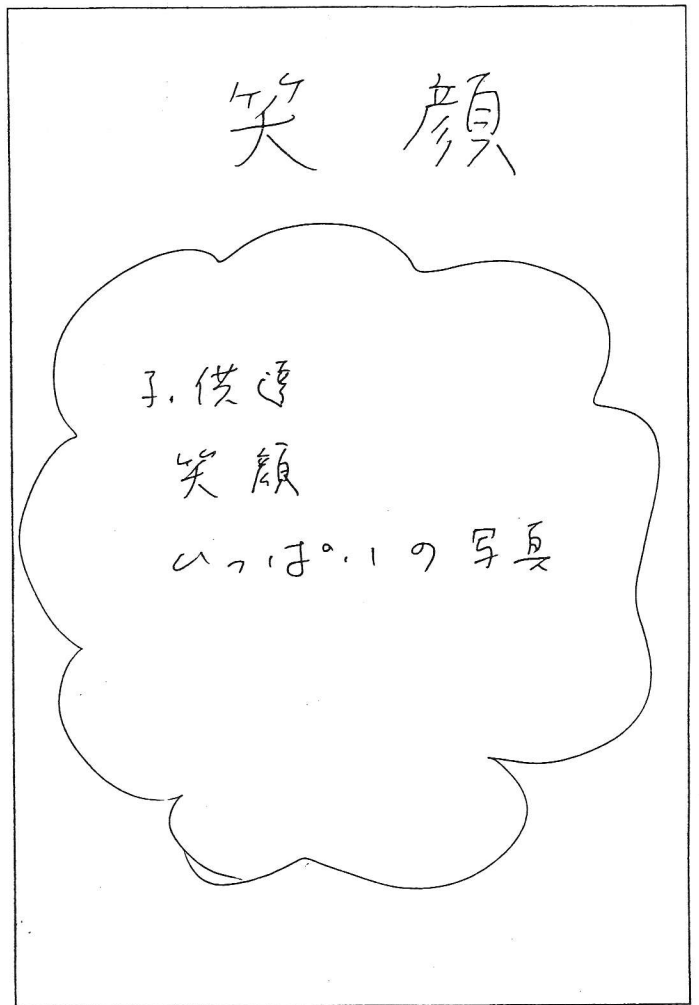 笑顔
子供達
笑顔
いっぱいの写真